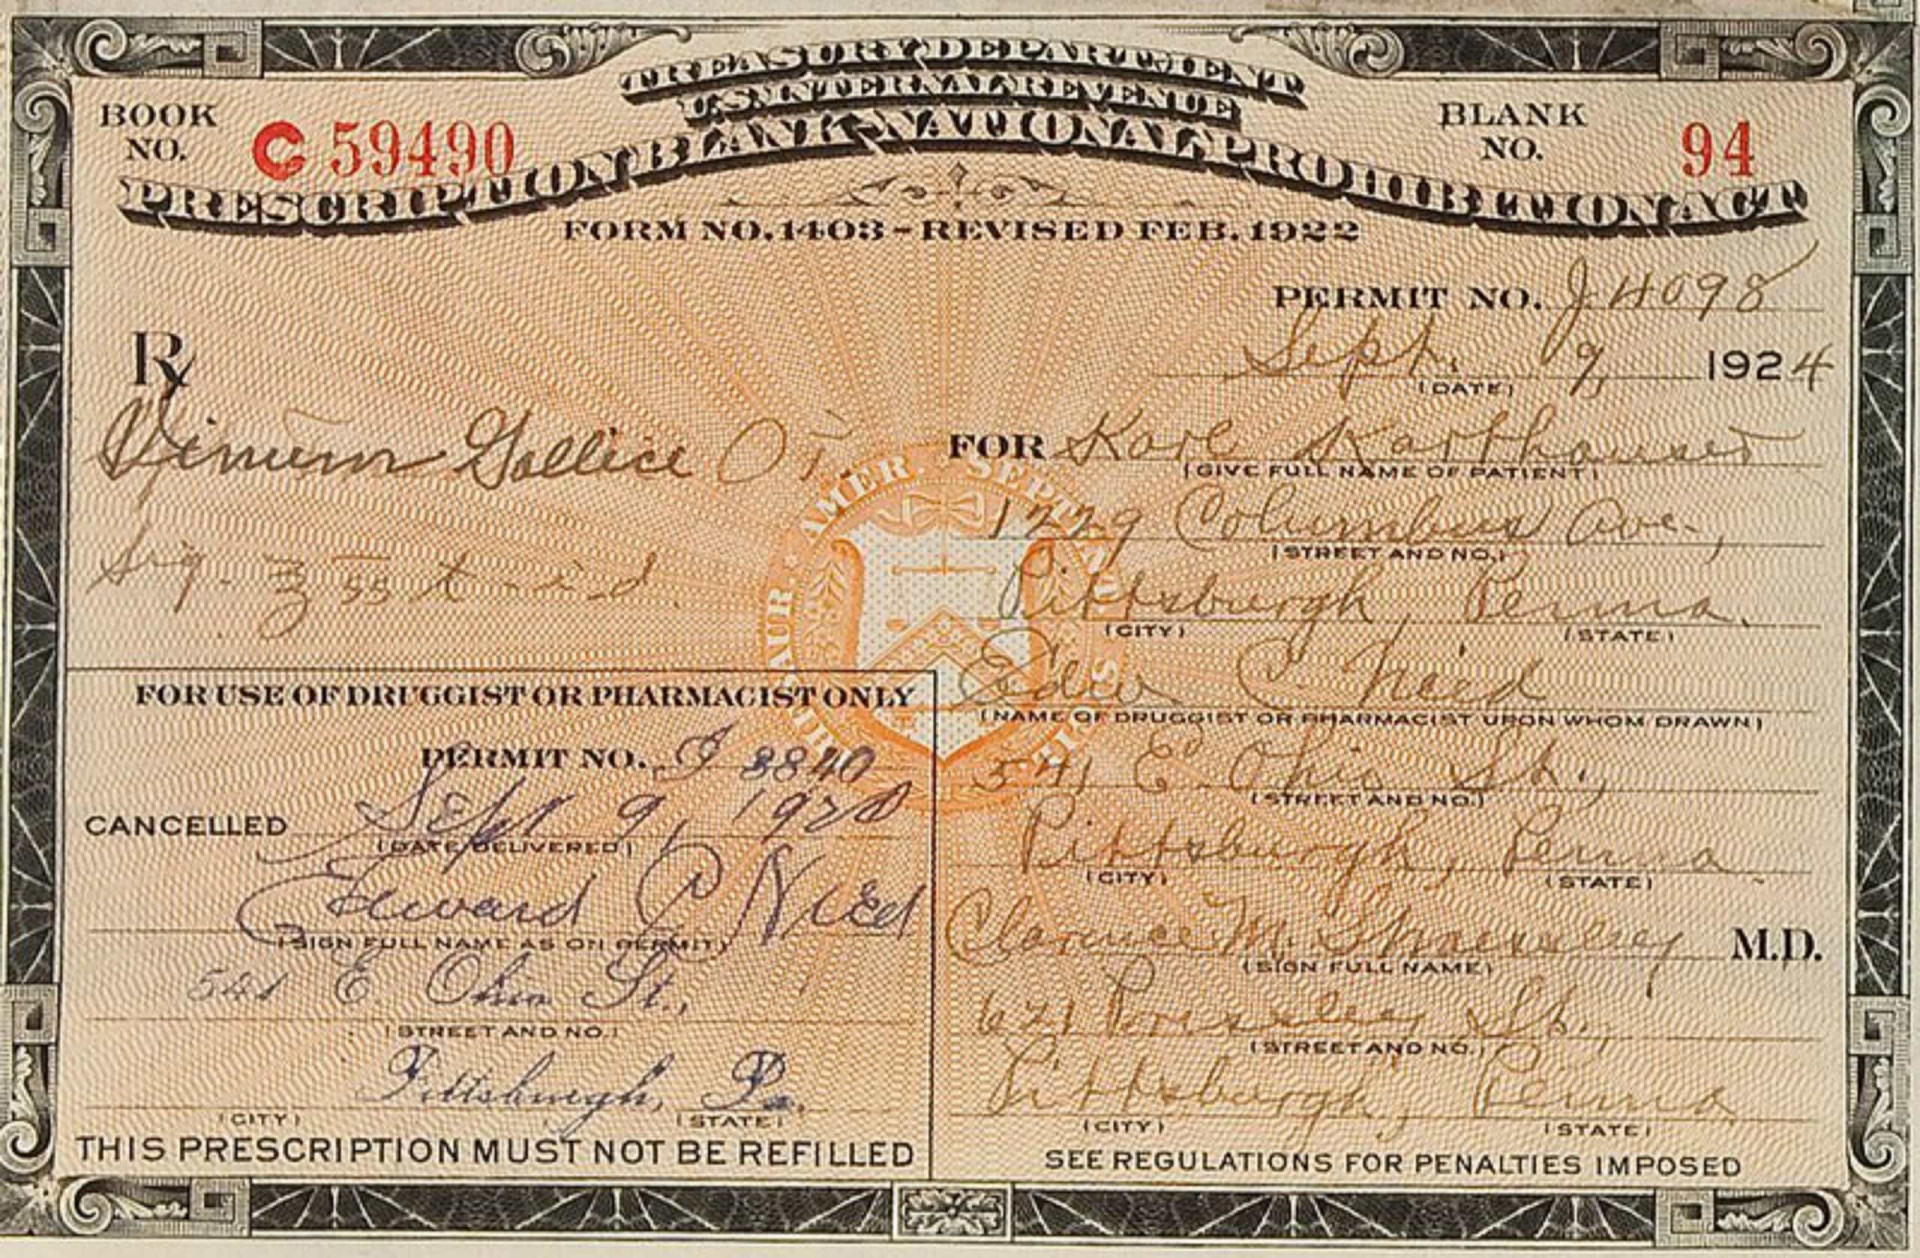 TREASURY DEPARTMENT
U.S. INTERNAL REVENUE
PRESCRIPTION BLANK-NATIONAL PROHIBITION ACT
FORM NO. 1403 - REVISED FEB. 1922
BOOK NO. C 59490
BLANK NO. 94
PERMIT NO. J 4098
Sept. 9, 1924
(DATE)
Rx
FOR Karl Karthauser
(GIVE FULL NAME OF PATIENT)
1229 Columbus Ave.,
(STREET AND NO.)
Pittsburgh, Penna.
(CITY) (STATE)
Edw C. Nied
(NAME OF DRUGGIST OR PHARMACIST UPON WHOM DRAWN)
541 E. Ohio St.,
(STREET AND NO.)
Pittsburgh, Penna.
(CITY) (STATE)
Clarence M. M.D.
(SIGN FULL NAME)
621 St.,
(STREET AND NO.)
Pittsburgh, Penna
(CITY) (STATE)
SEE REGULATIONS FOR PENALTIES IMPOSED
Vinum Gallice
Sig. ℥ ss t-i-d.
FOR USE OF DRUGGIST OR PHARMACIST ONLY
PERMIT NO.
CANCELLED Sept 9, 1924
(DATE DELIVERED)
Edward C Nied
(SIGN FULL NAME AS ON PERMIT)
541 E. Ohio St.,
(STREET AND NO.)
Pittsburgh, Pa.
(CITY) (STATE)
THIS PRESCRIPTION MUST NOT BE REFILLED
THESAUR. AMER. SEPTENT. SIGIL.